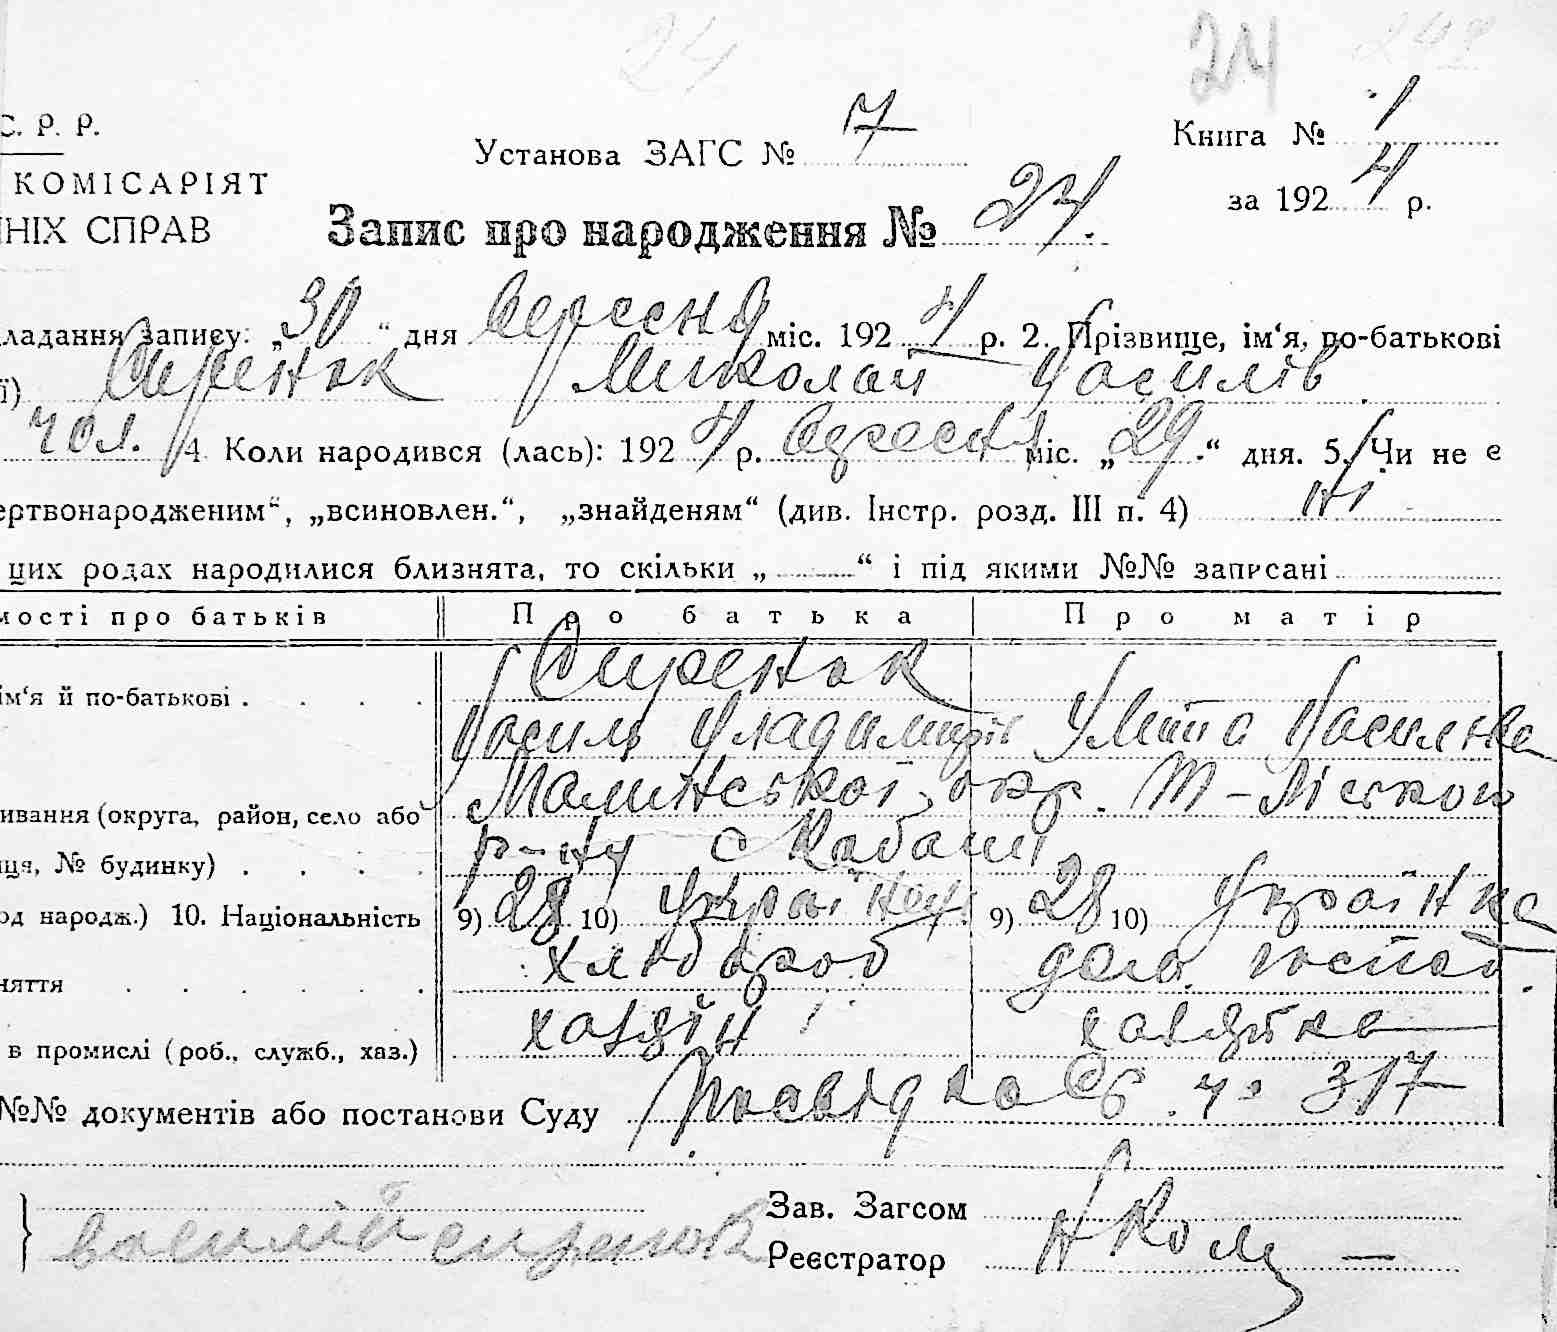 24 24
С. Р. Р.
Установа ЗАГС № 7
Книга № 1
КОМІСАРІЯТ
за 1924 р.
НІХ СПРАВ
Запис про народження № 24.
ладання запису: „30“ дня Вересня міс. 1924 р. 2. Прізвище, ім‘я, по-батькові
ї) Сиренок Миколай Василів
чол. 4. Коли народився (лась): 1924 р. Вересня міс. „29“ дня. 5. Чи не є
ертвонародженим“, „всиновлен.“, „знайденям“ (див. Інстр. розд. III п. 4) ні
цих родах народилися близнята, то скільки „ “ і під якими №№ записані
мості про батьків Про батька Про матір
Сиренок
ім‘я й по-батькові . . . .
Василь Владимирів Улита Васильвна
Малинської окр. Т-Ліською
ивання (округа, район, село або
р-ну с Кабані
ця, № будинку) . . . .
од народж.) 10. Національність 9) 28 10) Українец. 9) 28 10) Українка
хлібороб дом. господ.
няття . . . . . .
хазяїн хазяйка
в промислі (роб., служб., хаз.)
№№ документів або постанови Суду Посвідка Сб. ч° 317
Зав. Загсом
василій сиренок
Реєстратор